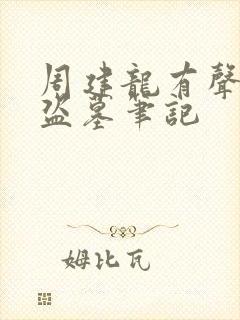 周建龍有聲
盜墓筆記
姆比瓦